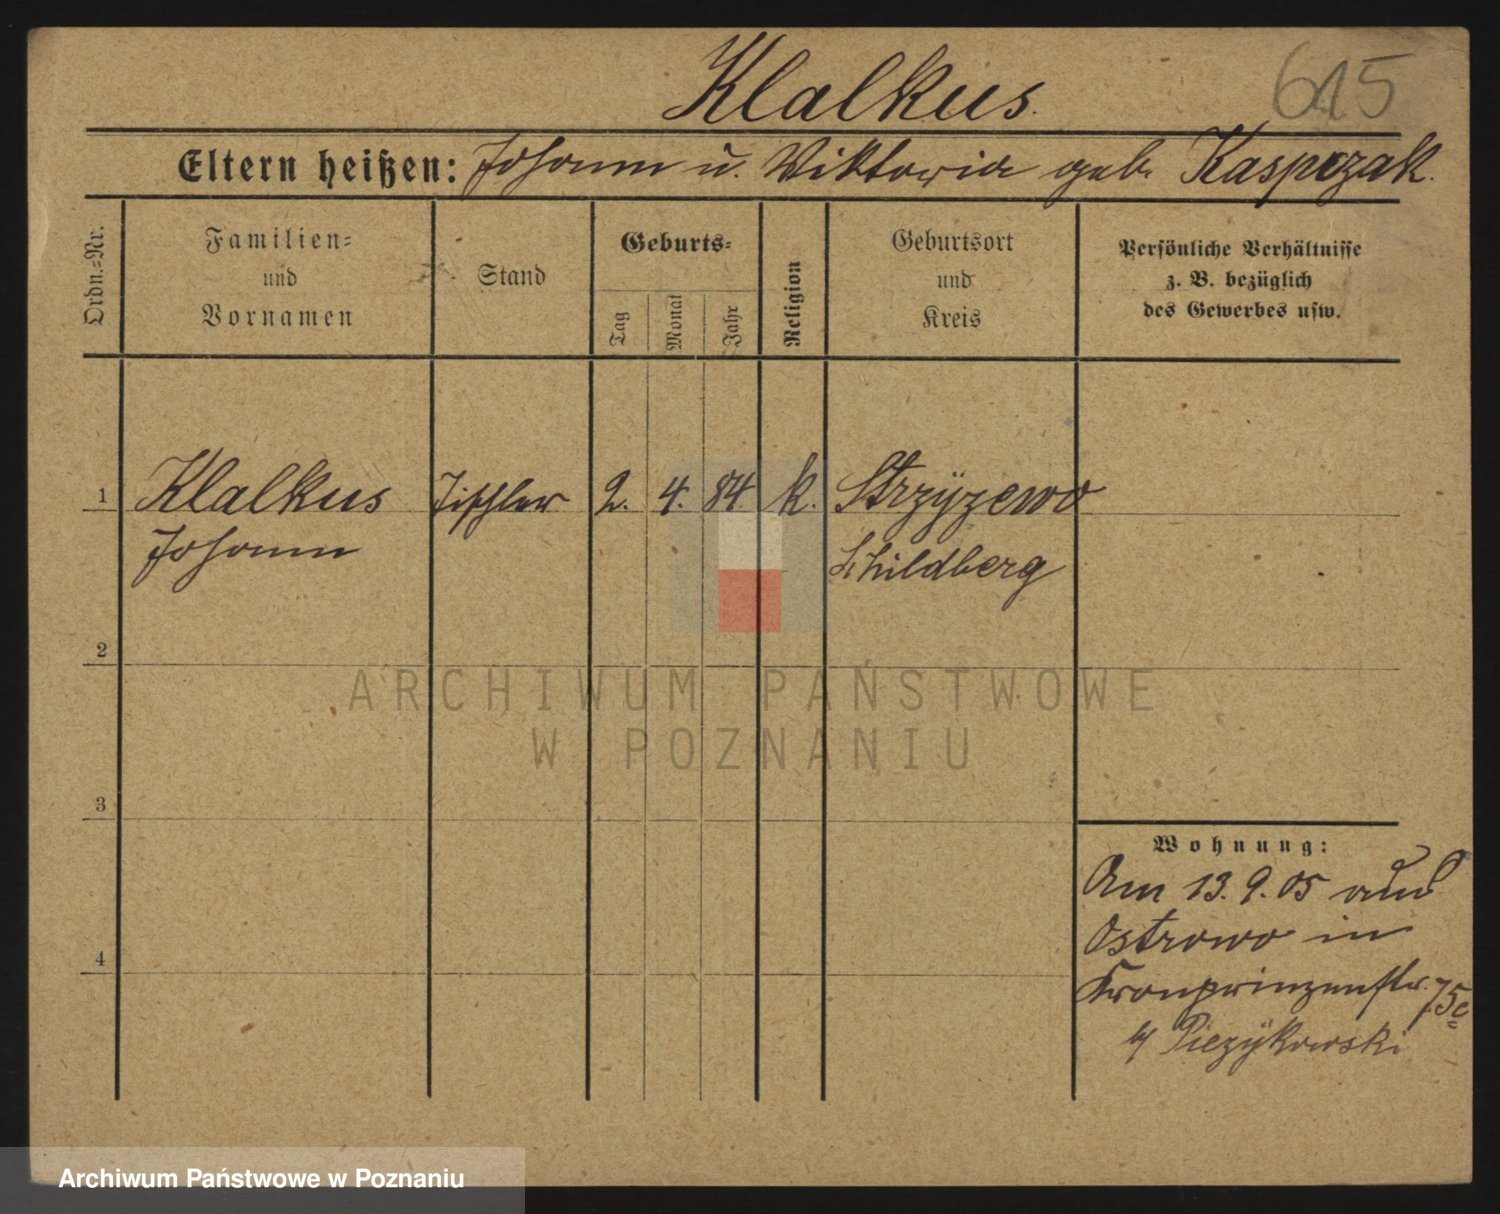 Klalkus.
615
Eltern heißen: Johann u. Viktoria geb. Kasprzak.
Ordn.-Nr.
Familien-
und
Vornamen
Stand
Geburts-
Tag
Monat
Jahr
Religion
Geburtsort
und
Kreis
Persönliche Verhältnisse
z. B. bezüglich
des Gewerbes usw.
1 Klalkus Tischler 2. 4. 84. k. Strzyzewo
Johann Schildberg
2
ARCHIWUM PAŃSTWOWE
W POZNANIU
3
Wohnung:
Am 13. 9. 05 aus
Ostrowo in
4
Kronprinzenstr. 75c
b/ Piezykowski
Archiwum Państwowe w Poznaniu